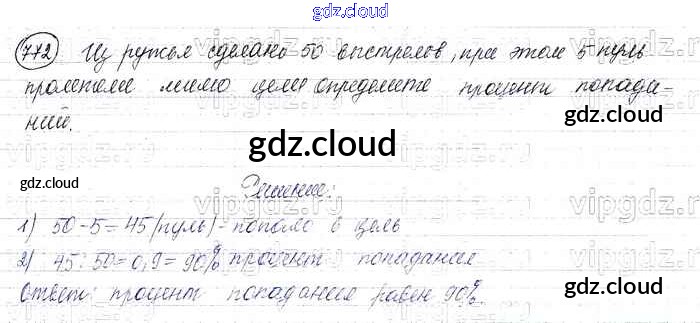 gdz.cloud
772 Из ружья сделано 50 выстрелов, при этом 5 пуль
пролетели мимо цели определите проценты попада-
ний.
gdz.cloud
gdz.cloud
gdz.cloud
Решение:
vipgdz.ru
1) 50-5=45 (пуль)-попало в цель
2) 45:50=0,9=90% процент попадание
gdz.cloud
Ответ: процент попадание равен 90%